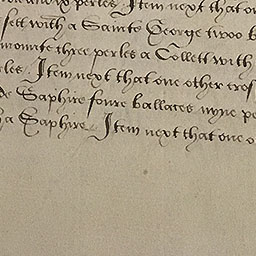 perles. Item next that on
sett with a Sainte George twoo b
three perles a Collett with
les. Item next that one other cros
de Saphire foure ballaces nyne pe
a Saphire. Item next that one o